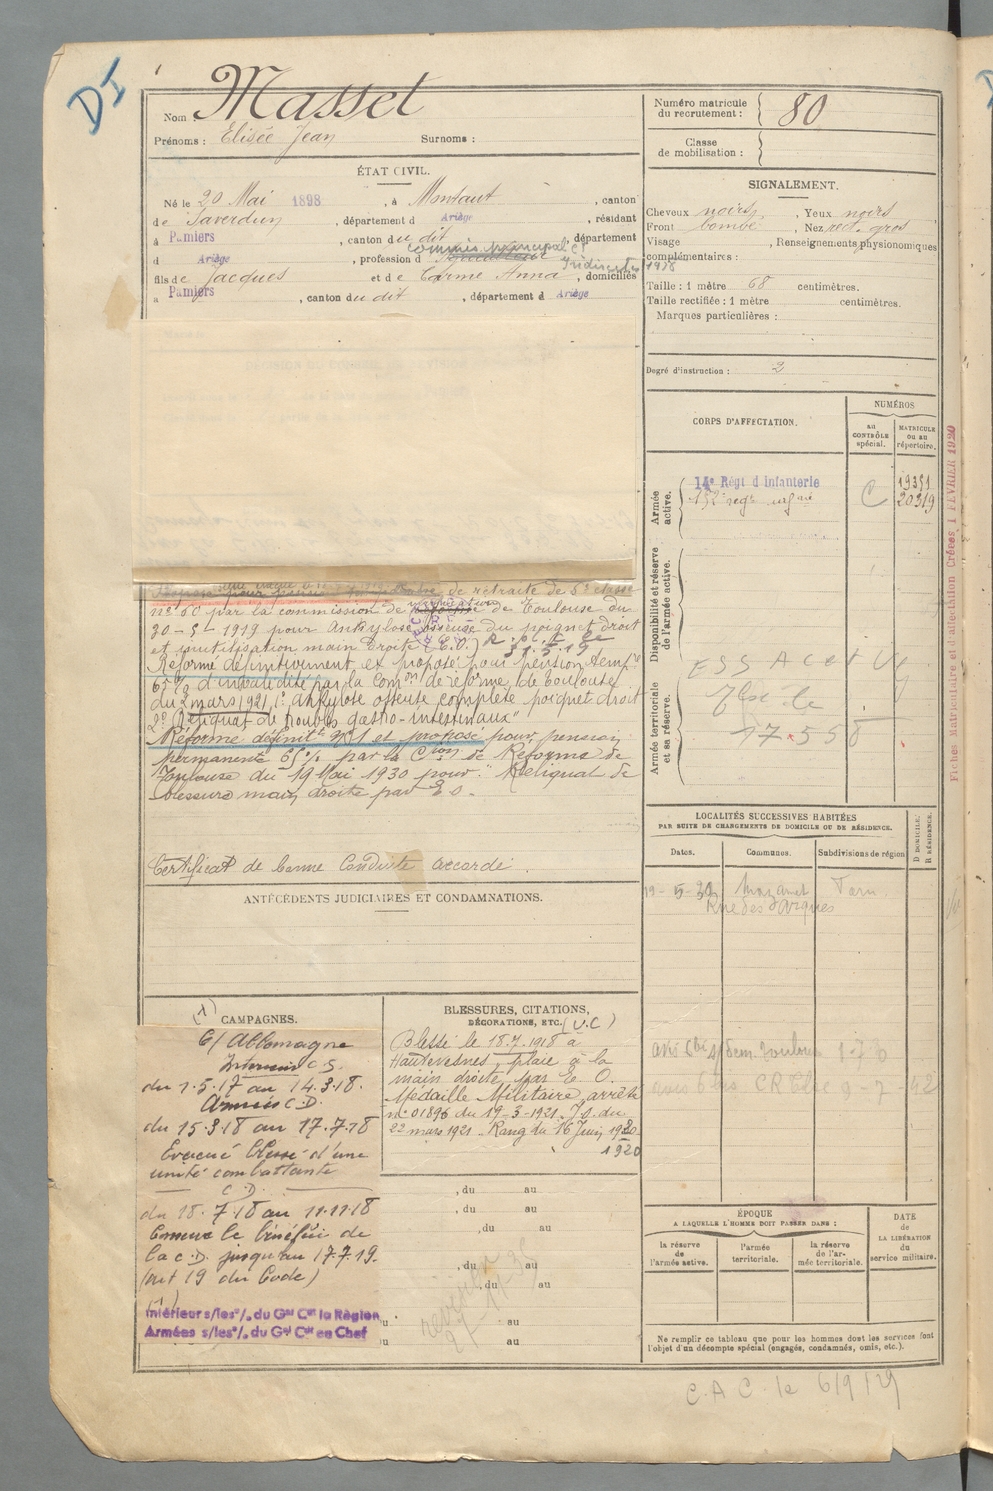 DI
Nom : Masset
Prénoms : Elisée Jean Surnoms :
Numéro matricule du recrutement : 80
Classe de mobilisation :
ÉTAT CIVIL.
Né le 20 Mai 1898, à Montaut, canton
de Saverdun, département d Ariège, résidant
à Pamiers, canton du dit, département
d Ariège, profession d commis principal
fils de Jacques et de Carme Anna, domiciliés
à Pamiers, canton du dit, département d Ariège
SIGNALEMENT.
Cheveux noirs, Yeux noirs
Front bombé, Nez rect. gros
Visage , Renseignements physionomiques
complémentaires :
Taille : 1 mètre 68 centimètres.
Taille rectifiée : 1 mètre centimètres.
Marques particulières :
Degré d'instruction : 2
CORPS D'AFFECTATION.
NUMÉROS
au CONTRÔLE spécial.
MATRICULE ou au répertoire.
Armée active.
14e Régt d'Infanterie
152e
C
19351
20319
Disponibilité et réserve de l'armée active.
Armée territoriale et sa réserve.
17.5.58
Fiches Matriculaire et d'affectation Créées 1 FEVRIER 1920
de retraite de 6e classe
n° 60 par la commission de de Toulouse du
30-5-1919 pour Ankylose osseuse du poignet droit
et inutilisation main droite (E.O.)
31.5.19
Réformé définitivement et proposé pour pension temp re
65% d'invalidité par la Com on de réforme de Toulouse
du 2 mars 1921, 1° ankylose osseuse complète poignet droit
2° Reliquat de troubles gastro-intestinaux"
Réformé définit t N°1 et proposé pour pension
permanente 65% par la C ion de Réforme de
Toulouse du 19 Mai 1930 pour : "Reliquat de
blessure main droite par E.O.
Certificat de bonne Conduite accordé.
ANTÉCÉDENTS JUDICIAIRES ET CONDAMNATIONS.
LOCALITÉS SUCCESSIVES HABITÉES
PAR SUITE DE CHANGEMENTS DE DOMICILE OU DE RÉSIDENCE.
Dates. Communes. Subdivisions de région
D DOMICILE. R RÉSIDENCE.
19-5-30 Mazamet Tarn
Rue des
(1)
CAMPAGNES.
C/ Allemagne
Intérieur C.S.
du 1.5.17 au 14.3.18.
Armées C.D.
du 15.3.18 au 17.7.18
Evacué blessé d'une
unité combattante
C.D.
du 18.7.18 au 11.11.18
Conserve le bénéfice de
la C.D. jusqu'au 17.7.19.
(art 19 du Code)
Intérieur s/les o/. du Gal Ct la Région
Armées s/les o/. du Gal Ct en Chef
BLESSURES, CITATIONS,
DÉCORATIONS, ETC. (U.C)
Blessé le 18.7.1918 à
Hautevesnes plaie à la
main droite par E.O.
Médaille Militaire arrêté
n° 01896 du 19-3-1921. J.O. du
22 mars 1921. Rang du 16 Juin 1920
1920
, du au
, du au
, du au
, du au
, du au
u au
u au
ÉPOQUE
A LAQUELLE L'HOMME DOIT PASSER DANS :
la réserve de l'armée active.
l'armée territoriale.
la réserve de l'armée territoriale.
DATE de LA LIBÉRATION du service militaire.
Ne remplir ce tableau que pour les hommes dont les services font
l'objet d'un décompte spécial (engagés, condamnés, omis, etc.).
C.A.C. le 6/9/29